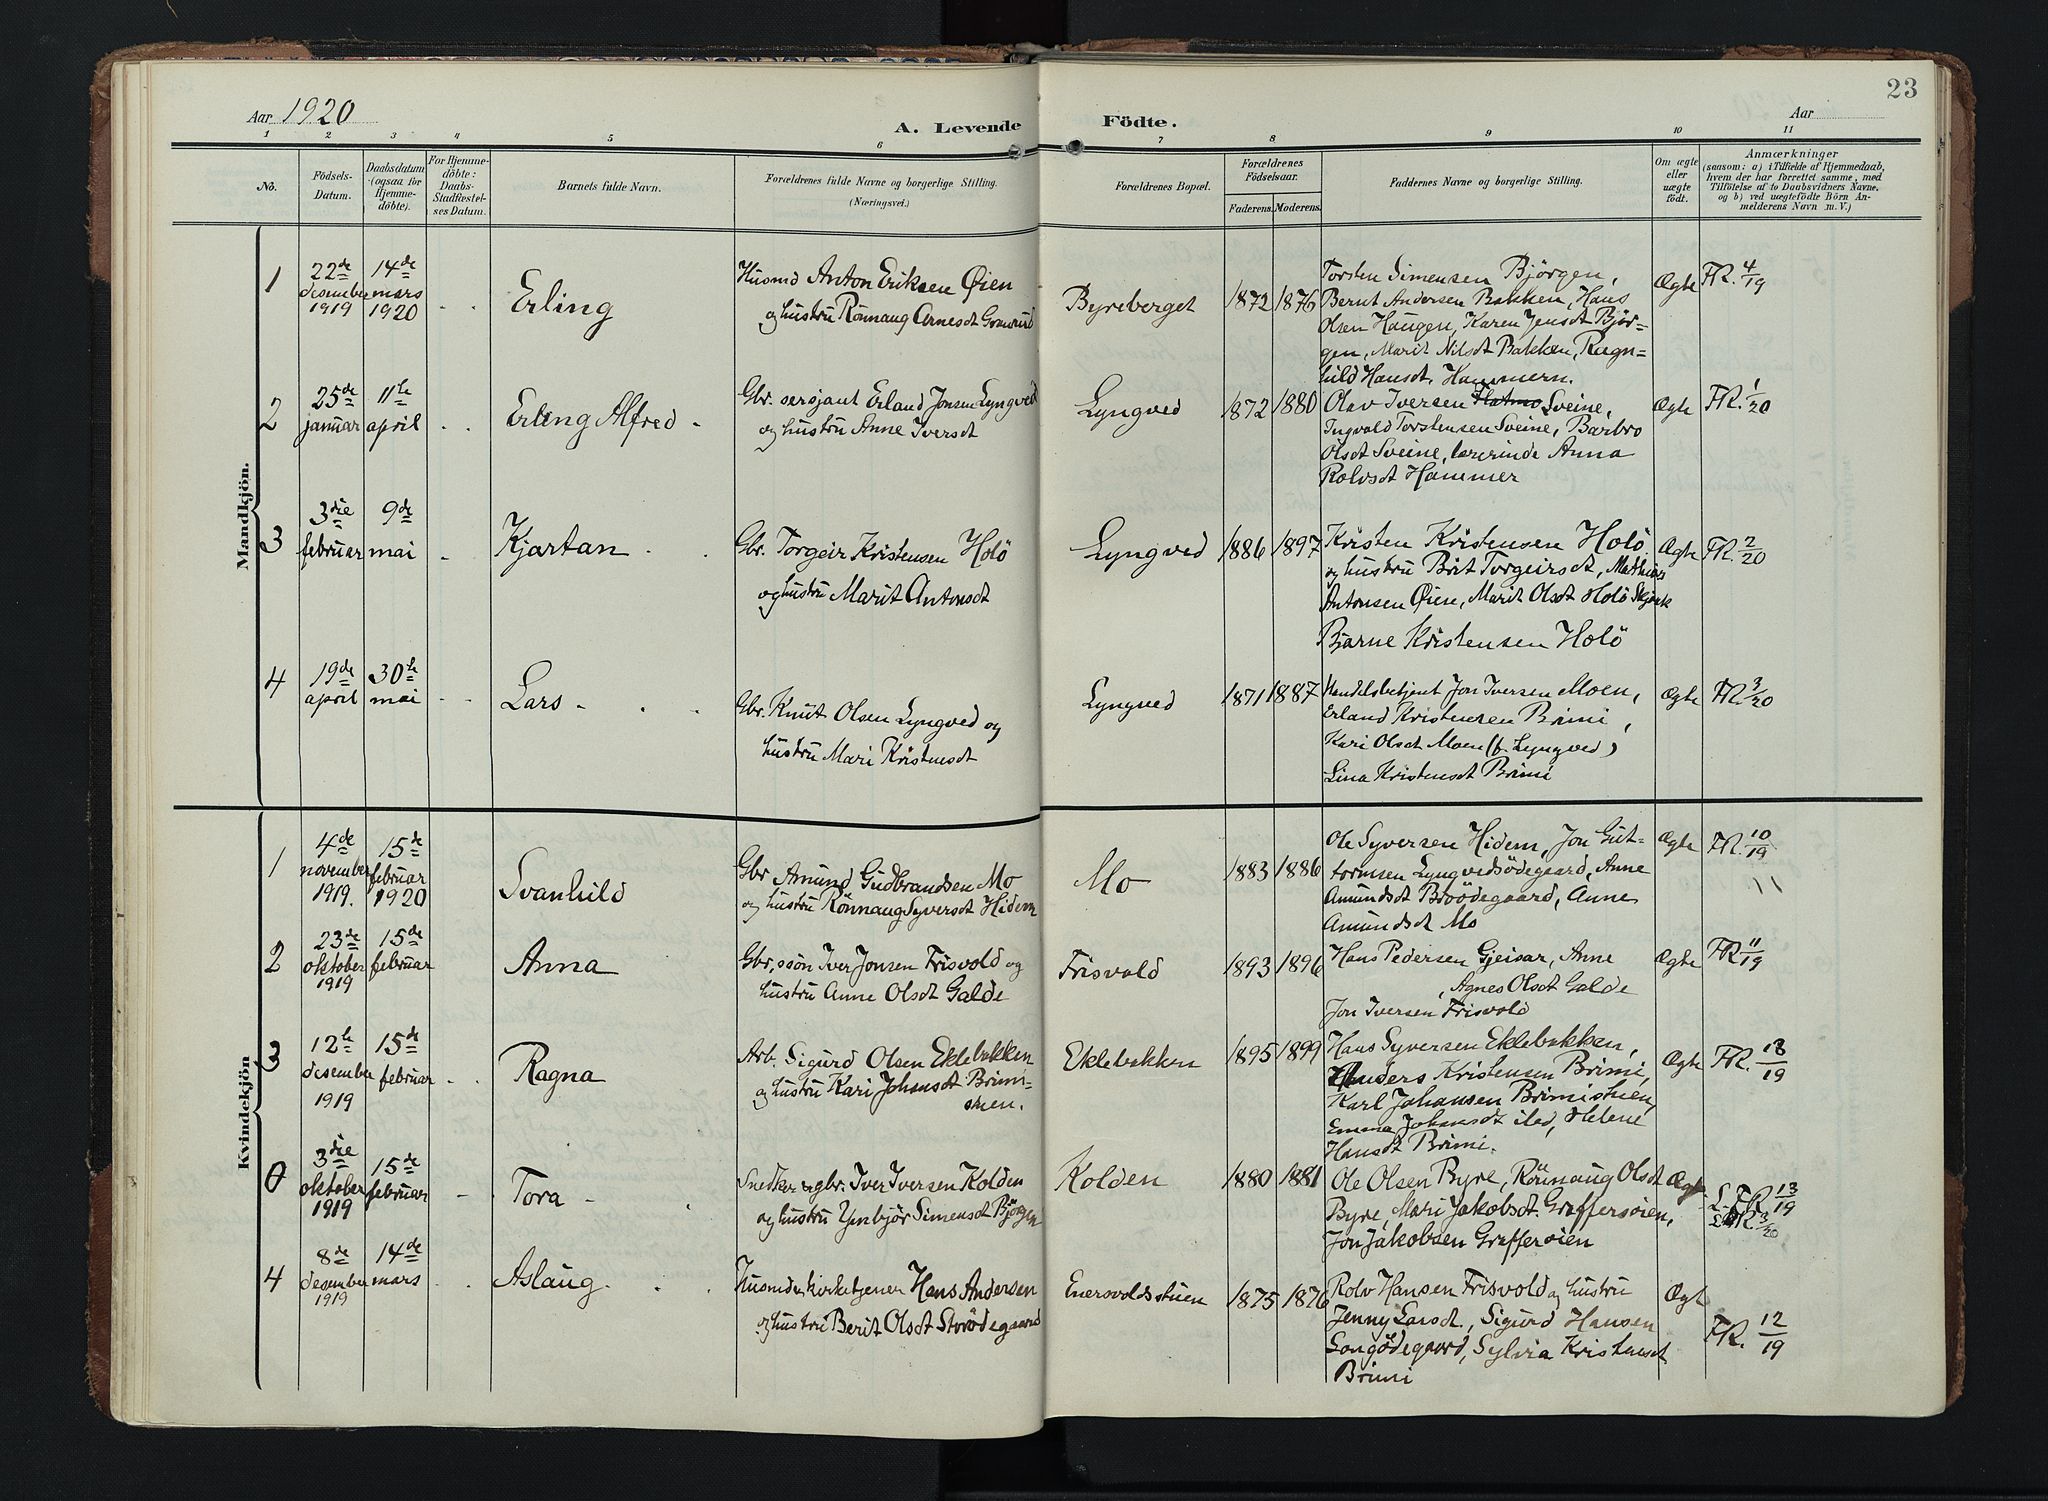 23
Aar 1920
A. Levende Födte.
Aar
1 2 3 4 5 6 7 8 9 10 11
No.
Födsels-
Datum.
Daabsdatum
(ogsaa for
Hjemme-
döbte).
For Hjemme-
döbte:
Daabs-
Stadfæstel-
ses Datum.
Barnets fulde Navn.
Forældrenes fulde Navne og borgerlige Stilling.
(Næringsvei.)
Forældrenes Bopæl.
Forældrenes
Födselsaar.
Faderens. Moderens.
Faddernes Navne og borgerlige Stilling.
Om ægte
eller
uægte
født.
Anmærkninger
(saasom: a) i Tilfælde af Hjemmedaab,
hvem der har forrettet samme, med
Tilföielse af to Daabsvidners Navne,
og b) ved uægtefödte Börn An-
melderens Navn m. V.)
Mandkjön.
1
22de
desember
1919
14de
mars
1920
Erling
Husmd Anton Eriksen Øien
og hustru Rönnaug Arnesdt
Byreberget
1872 1876
Torsten Simensen Björgen,
Bernt Andersen Bakken, Hans
Olsen Haugen, Karen Jensdt Björ-
gen, Marit Nilsdt Bakken, Ragn-
hild Hansdt Hammern.
Ægte
FR. 4/19
2
25de
januar
11te
april
Erling Alfred
Gbr. sersjant Erland Jonsen Lyngved
og hustru Anne Iversdt
Lyngved
1872 1880
Olav Iversen Sveine,
Ingvald Torstensen Sveine, Barbro
Olsdt Sveine, lærerinde Anna
Rolvsdt Hammer
Ægte
FR. 1/20
3
3die
februar
9de
mai
Kjartan
Gbr. Torgeir Kristensen Holö
og hustru Marit Antonsdt
Lyngved
1886 1897
Kristen Kristensen Holö
og hustru Brit Torgeirsdt, Mathias
Antonsen Øien, Marit Olsdt Holö Skjåk
Bjarne Kristensen Holö
Ægte
FR. 2/20
4
19de
april
30te
mai
Lars
Gbr. Knut Olsen Lyngved og
hustru Mari Kristensdt
Lyngved
1871 1887
Handelsbetjent Jon Iversen Moen,
Erland Kristensen Brimi,
Kari Olsdt Moen (f. Lyngved)
Lina Kristensdt Brimi
Ægte
FR. 3/20
Kvindekjön
1
4de
november
1919.
15de
februar
1920
Svanhild
Gbr Amund Gudbrandsen Mo
og hustru Rönnaug Syversdt Hidem
Mo
1883 1886
Ole Syversen Hidem, Jon Gut-
tormsen Lyngvedsödegaard, Anne
Amundsdt Moödegaard, Anne
Amundsdt Mo
Ægte
FR. 10/19
2
23de
oktober
1919
15de
februar
Anna
Gbr, søn Iver Jonsen Frisvold og
hustru Anne Olsdt Galde
Frisvold
1893 1896
Hans Pedersen Gjeisar, Anne
, Agnes Olsdt Galde
Jon Iversen Frisvold
Ægte
FR 11/19
3
12te
desember
1919
15de
februar
Ragna
Arb. Sigurd Olsen Eklebakken
og hustru Kari Johansdt Brimi-
stuen.
Eklebakken
1895 1899
Hans Syversen Eklebakken,
Anders Kristensen Brimi,
Karl Johansen Brimistuen,
Emma Johansdt sted, Helene
Hansdt Brimi.
Ægte
FR. 13/19
0
3die
oktober
1919
15de
februar
Tora
Snedker og gbr. Iver Iversen Kolden
og hustru Ynbjör Simensdt Björgen
Kolden
1880 1881
Ole Olsen Byre, Rönnaug Olsdt
Byre, Mari Jakobsdt Graffersøien,
Jon Jakobsen Graffersøien
Ægte
FR 13/19
4
8de
desember
1919
14de
mars
Aslaug
Husmd & kirketjener Hans Andersen
og hustru Berit Olsdt Storödegaard
Enersvoldsstuen
1875 1876
Rolv Hansen Frisvold og hustru
Jenny Larsdt., Sigurd Hansen
Songödegaard, Sylvia Kristensdt
Brimi
Ægt
FR. 12/19